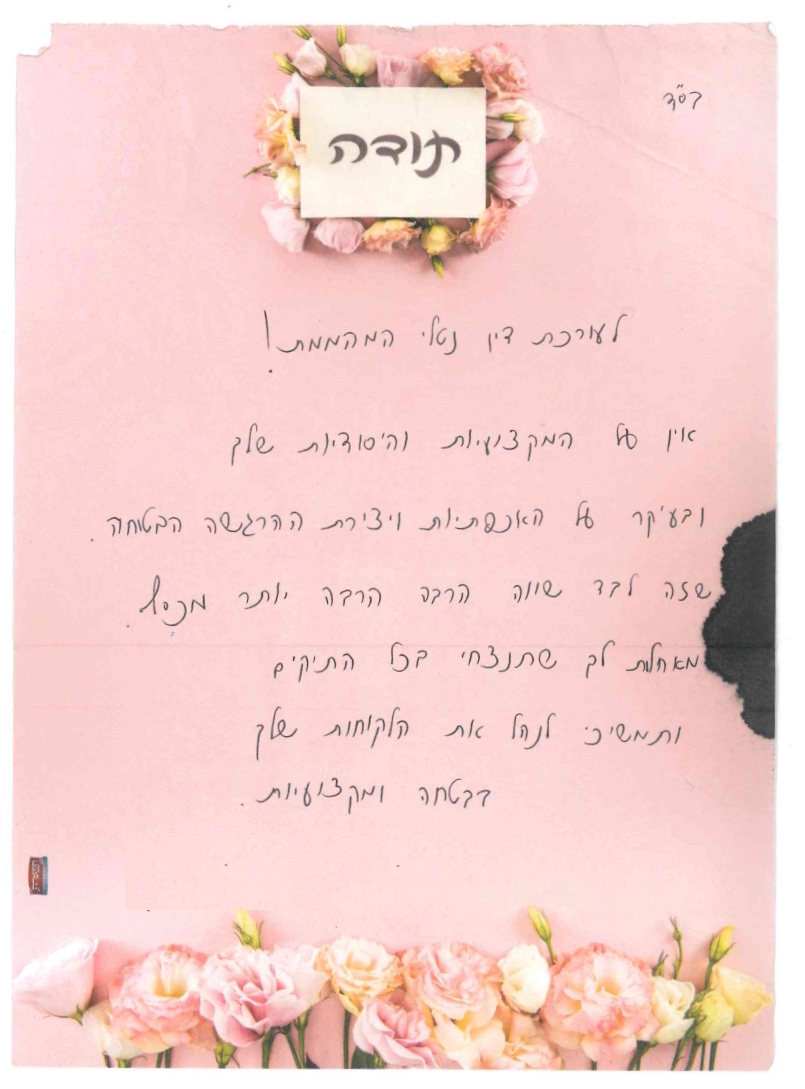 בס"ד
תודה
לעורכת דין נטלי המהממת!
אין על המקצועיות והיסודיות שלך
ובעיקר על האכפתיות ויצירת ההרגשה הבטוחה.
שזה לבד שווה הרבה הרבה יותר מכסף.
מאחלת לך שתנצחי בכל התיקים
ותמשיכי לנהל את הלקוחות שלך
בבטחה ומקצועיות.